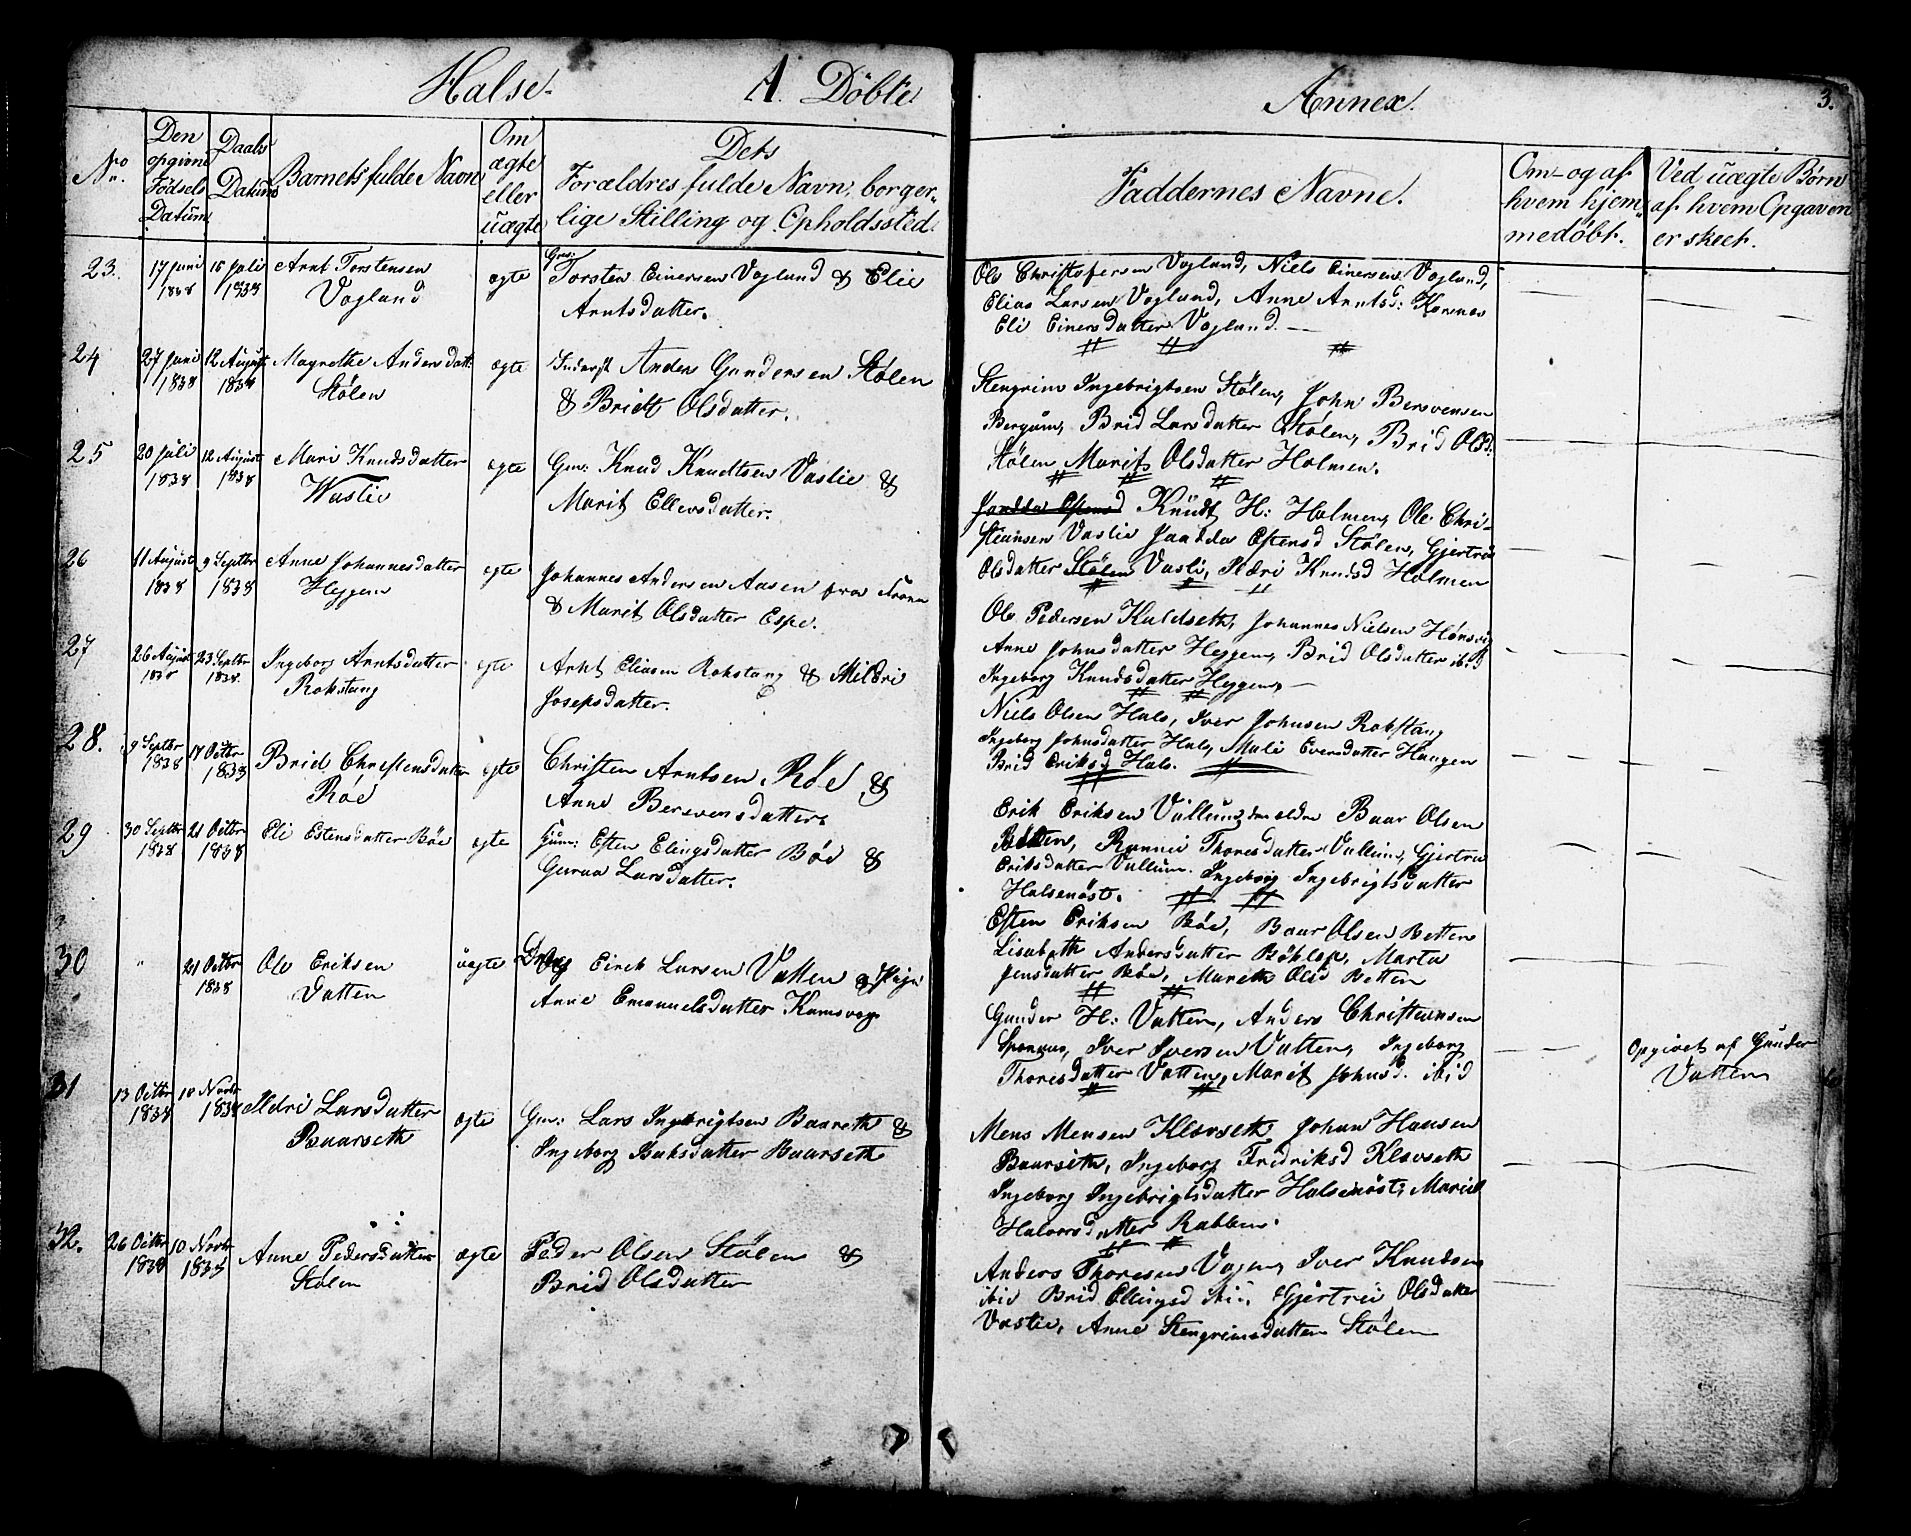 Halse. A. Döbte.
Annex.
3.
No.
Den opgivne Födsels Datum
Daabs Datum
Barnets fulde Navn
Om ægte eller uægte
Dets
Forældres fulde Navn, borger-
lige Stilling og Opholdssted.
Faddernes Navne.
Om- og af
hvem hjem-
medöbt.
Ved uægte Börn
af hvem Opgaven
er skeet.
23. 17 Juni 1838 15 Juli 1838 Arnt Torstensen
Vogland
ægte
Gm: Torsten Einersen Vogland & Elie
Arntsdatter.
Ole Christofersen Vogland, Niels Einersen Vogland,
Elias Larsen Vogland, Anne Arntsd: Korsnes
Eli Einersdatter Vogland. —
24 27 Juni 1838 12 August 1838 Magrethe Andersdatt:
Stölen
ægte
Inderst Anders Gundersen Stölen
& Bridt Olsdatter.
Stengrim Ingebrigtsen Stölen, John Bersvensen
Bergum, Brid Larsdatter Stölen, Brid Olsd:
Stölen, Marit Olsdatter Holmen.
25 20 Juli 1838 12 August 1838 Mari Knudsdatter
Waslie
ægte
Gm: Knud Knudtsen Vaslie &
Marit Ellevsdatter.
Knudt H: Holmen, Ole Chri-
stiansen Vaslie Jaadda Estensd Stölen, Gjertru
Olsdatter Stölen Vasli, Ildri Knudsd Holmen
26 11 August 1838 9 Septbr 1838 Anne Johannesdatter
Heggem
ægte
Johannes Andersen Aasen fra
& Marit Olsdatter Espe.
Ole Pedersen Kuldseth, Johannes Nielsen Hönsvig
Anne Johnsdatter Heggem, Brid Olsdatter ibid
Ingeborg Knudsdatter Heggem, —
27 26 August 1838 23 Septbr 1838. Ingeborg Arntsdatter
Rokstang
ægte
Arnt Eliasen Rokstang & Mildri
Josepsdatter.
Niels Olsen Hals, Iver Johnsen Rokstang
Ingeborg Johnsdatter Hals, Mali Eversdatter Haugen
Brid Eriksd Hals.
28. 9 Septbr 1838 14 Octbr 1838 Brid Christensdatter
Röe
ægte
Christen Arntsen Röe &
Anne Bersvensdatter.
Erik Eriksen Vullum den eldre Baar Olsen
Betten, Rannei Thoresdatter Vullum, Gjertru
Eriksdatter Vullum. Ingeborg Ingebrigtsdatter
Halsenöst.
29 30 Septbr 1838 21 Octbr 1838 Eli Estensdatter Böe
ægte
Gm: Esten Elingsdatter Böe &
Guroa Larsdatter.
Esten Eriksen Böe, Baar Olsen Betten
Lisabeth Andersdatter, Marta
Jensdatter Böe, Mareth Olsd Betten
30 21 Octbr 1838 Ole Eriksen
Vatten
uægte
Erick Larsen Vatten & Pige
Anne Emanuelsdatter Kamsvog
Gunder H: Vatten, Anders Christiansen
Spannes, Iver Iversen Vatten, Ingeborg
Thoresdatter Vatten, Marit Johnsd. ibid
Opgivet af Gunder
Vatten
31 13 Octbr 1838 10 Novbr 1838 Ildri Larsdatter
Baarseth
ægte
Gm: Lars Ingebrigtsen Baarseth &
Ingeborg Baksdatter Baarseth
Mens Mensen Klevseth, Johan Hansen
Baarseth, Ingeborg Fredriksd Klevseth
Ingeborg Ingebrigtsdatter Halsenöst, Marit
Halvorsdatter Rabben.
32. 26 Octbr 1838 10 Novbr 1838 Anne Pedersdatter
Stölen
ægte
Peder Olsen Stölen &
Brid Olsdatter
Anders Thoresen Vogen, Iver Knudsen
ibid Brid Ellingsd ibid, Gjertru Olsdatter
Vaslie, Anne Stengrimsdatter Stölen